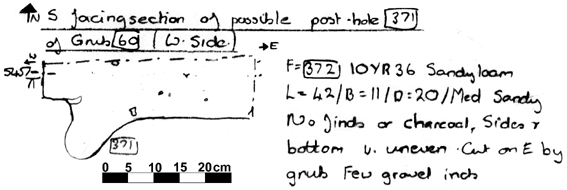 N S facing section of possible post-hole 371
of Grub 60 (W. Side)
→E
W
371
0 5 10 15 20cm
F= 372 10YR 36 Sandy loam
L=42/B=11/D=20/Med Sandy
No finds or charcoal, Sides +
bottom v. uneven. Cut on E by
grub Few gravel incls